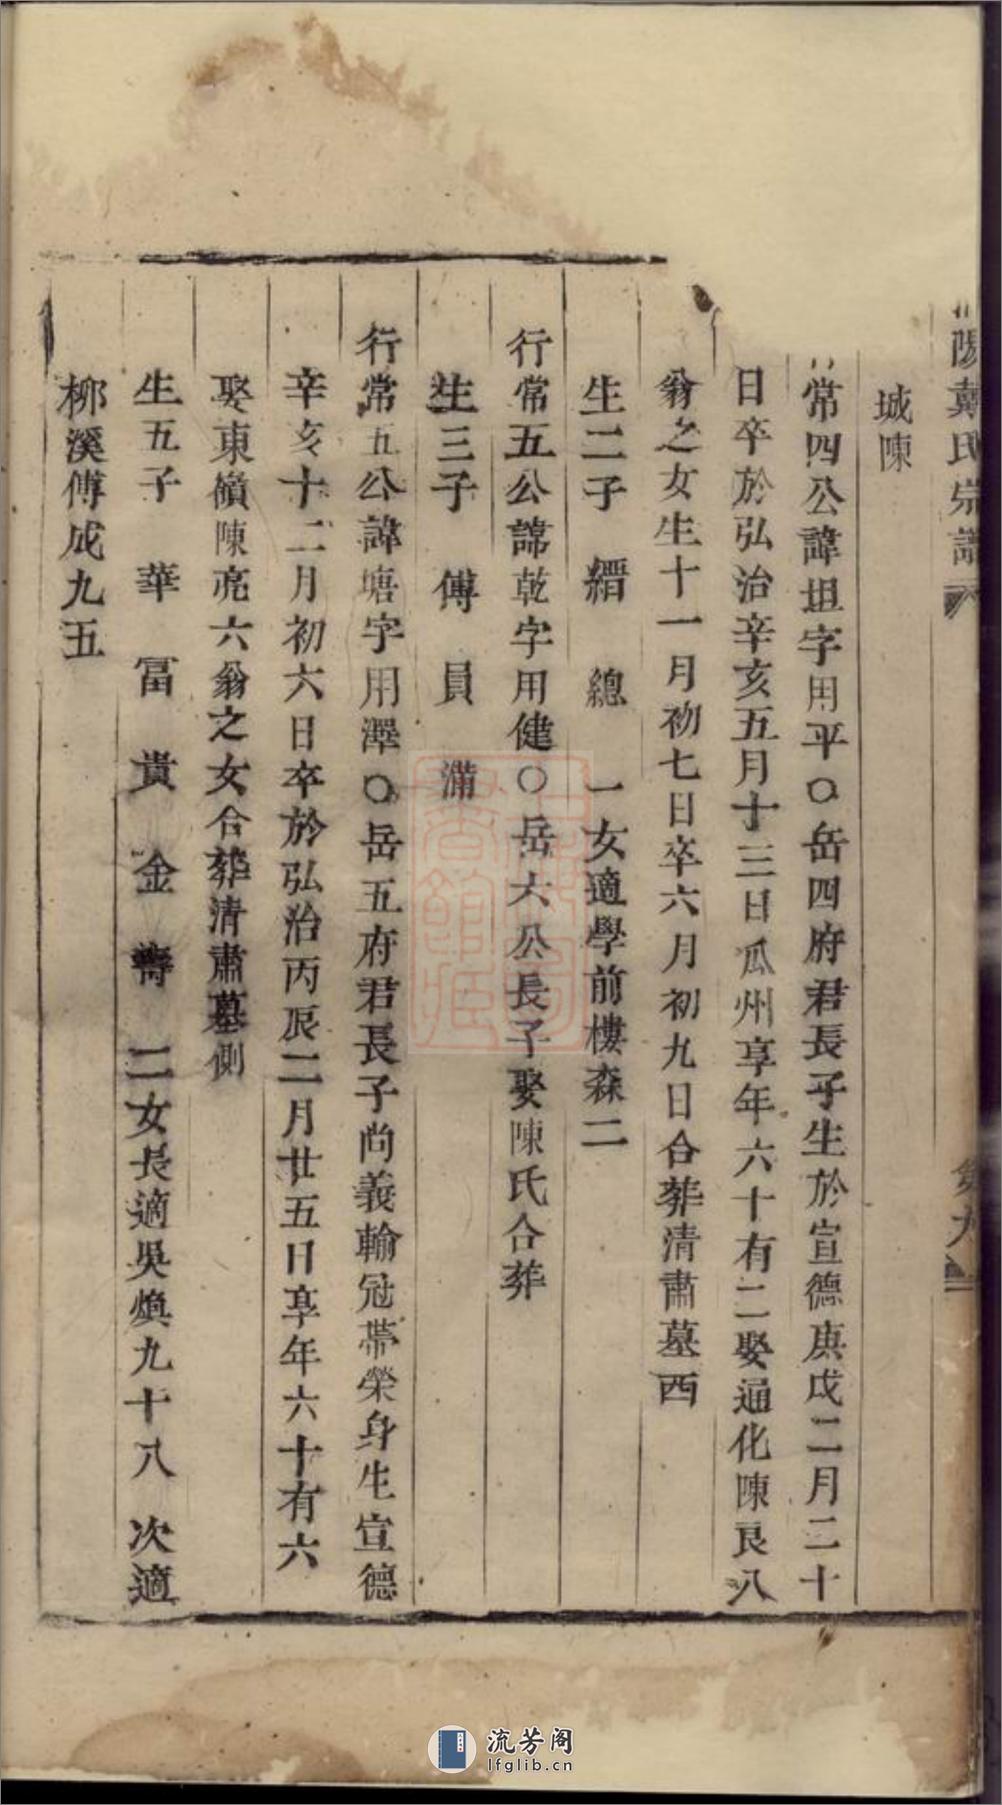 陽戴氏宗譜
卷九
城陳
行常四公諱坦字用平○岳四府君長子生於宣德庚戌二月二十
日卒於弘治辛亥五月十三日瓜州享年六十有二娶通化陳良八
翁之女生十一月初七日卒六月初九日合葬清肅墓西
生二子 縉 總 一女適學前樓森二
行常五公諱乾字用健○岳六公長子娶陳氏合葬
生三子 傅 員 滿
行常五公諱塘字用澤○岳五府君長子尚義輸冠帶榮身生宣德
辛亥十二月初六日卒於弘治丙辰二月廿五日享年六十有六
娶東嶺陳亮六翁之女合葬清肅墓側
生五子 華 冨 貴 金 壽 二女長適吳煥九十八 次適
柳溪傅成九五
流芳阁
lfglib.cn